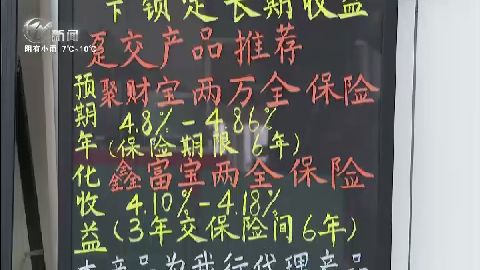 新闻
阴有小雨 7℃-10℃
下锁定长期收益
趸交产品推荐
聚财宝两万全保险
4.8%-4.86%
(保险期限6年)
鑫富宝两全保险
4.10%-4.18%
(3年交保险间6年)
预期年化收益
本产品为我行代理产品